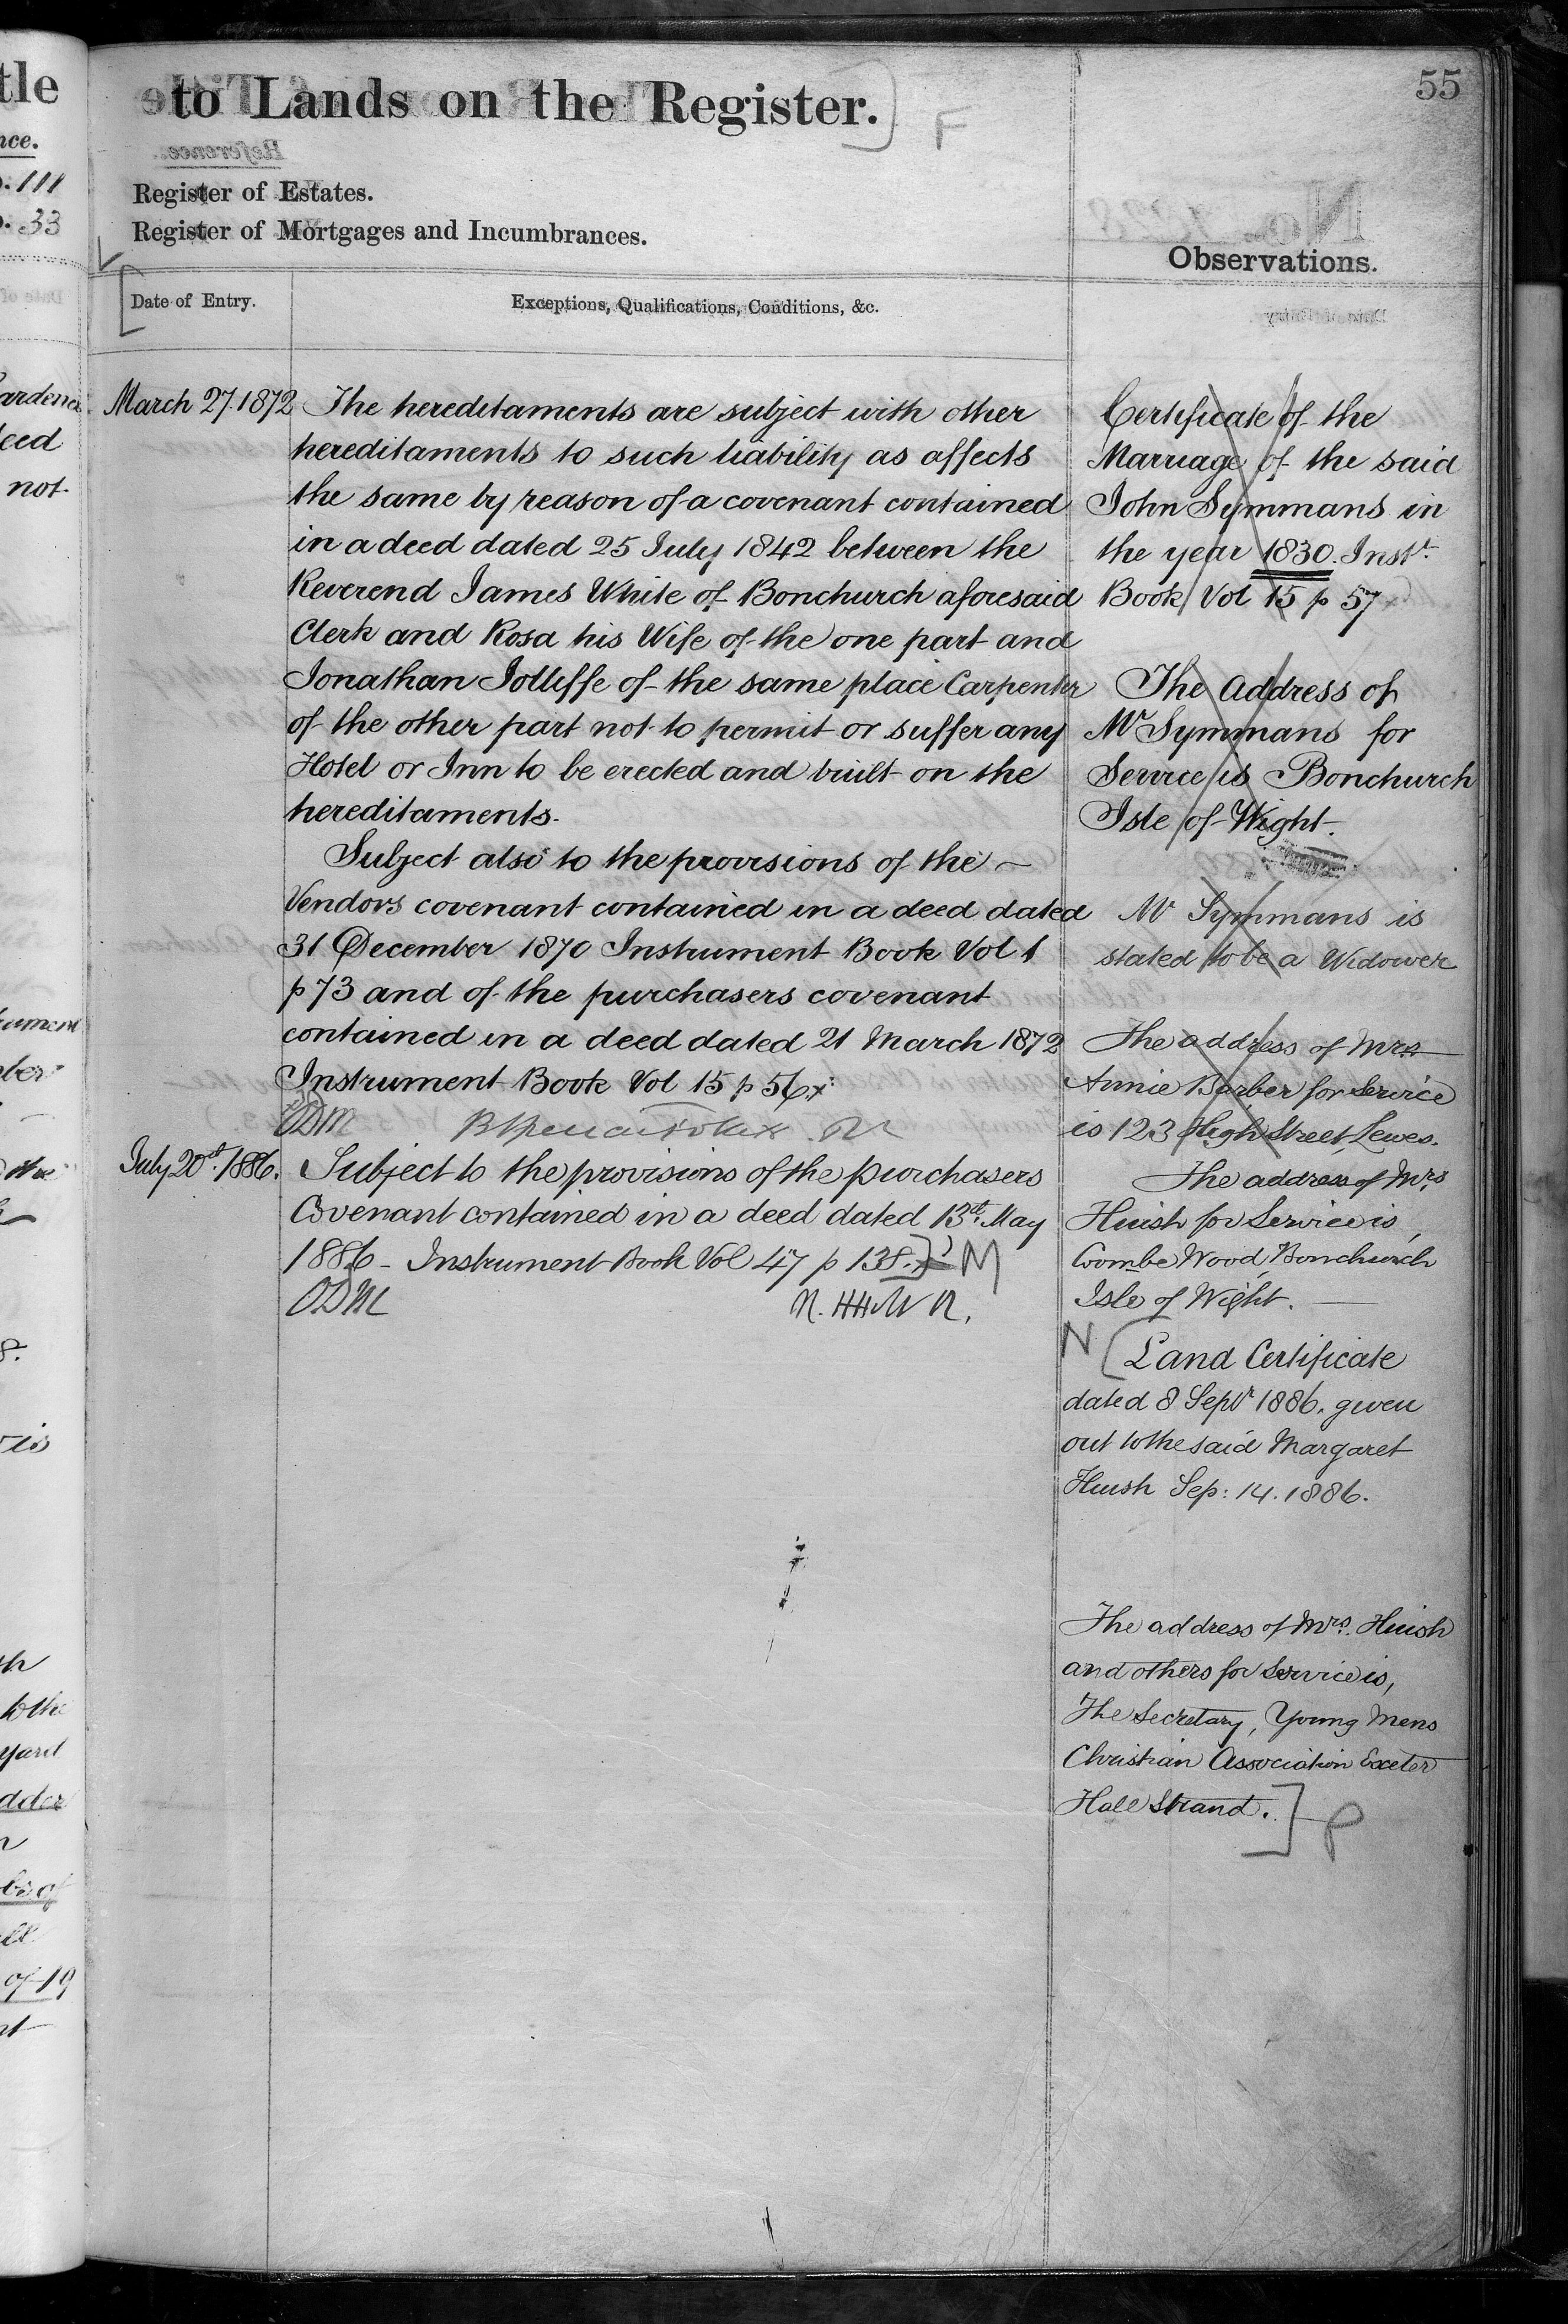 55
to Lands on the Register.
F
Register of Estates.
Register of Mortgages and Incumbrances.
Observations.
Date of Entry.
Exceptions, Qualifications, Conditions, &c.
March 27. 1872
The hereditaments are subject with other
hereditaments to such liability as affects
the same by reason of a covenant contained
in a deed dated 25 July 1842 between the
Reverend James White of Bonchurch aforesaid
Clerk and Rosa his Wife of the one part and
Jonathan Jolliffe of the same place Carpenter
of the other part not to permit or suffer any
Hotel or Inn to be erected and built on the
hereditaments.
Subject also to the provisions of the
Vendors covenant contained in a deed dated
31 December 1870 Instrument Book Vol 1
p 73 and of the purchasers covenant
contained in a deed dated 21 March 1872
Instrument Book Vol 15 p 56 x
ODM
July 20th. 1886.
Subject to the provisions of the purchasers
Covenant contained in a deed dated 13th. May
1886 - Instrument Book Vol 47 p 138. M
ODM
Certificate of the
Marriage of the said
John Symmans in
the year 1830. Inst.
Book Vol 15 p 57
The Address of
Mr Symmans for
Service is Bonchurch
Isle of Wight.
Mr Symmans is
stated to be a Widower
The address of Mrs
Annie Barber for Service
is 123 High Street, Lewes.
The address of Mrs
Huish for Service is,
Coombe Wood, Bonchurch
Isle of Wight.
N
Land Certificate
dated 8 Septr 1886. given
out to the said Margaret
Huish Sep: 14. 1886.
The address of Mrs. Huish
and others for Service is,
The Secretary, Young Mens
Christian Association Exeter
Hall Strand.
P
tle
nce.
111
33
eed
not
of 19